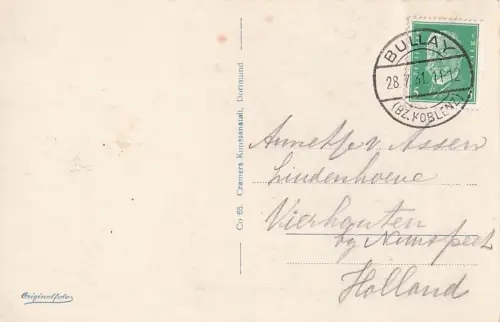 BULLAY
28.7.31.11-12
(BZ.KOBLENZ)
Co 65. Cramers Kunstanstalt, Dortmund
Annetje v Assen
Lindenhoeve
Vierhouten
by Nunspeet
Holland
Originalfoto